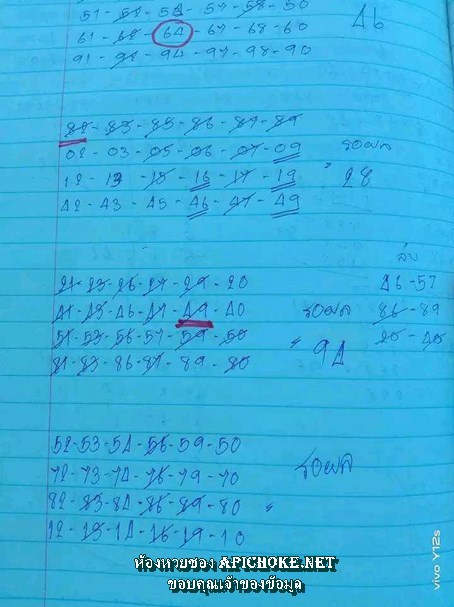 51-54-57-58-50
61-64-67-68-60
46
91-94-97-98-90
82-83-85-86-87-89
02-03-05-06-07-09
รอผล
12-13-15-16-17-19 " 28
42-43-45-46-47-49
21-23-26-27-29-20
46-57
41-43-46-47-49-40
รอผล
86-89
51-53-56-57-59-50
" 94
81-83-86-87-89-80
52-53-54-56-59-50
รอผล
72-73-74-76-79-70
82-83-84-86-89-80 "
12-13-14-16-19-10
ห้องหวยซอง APICHOKE.NET
ขอบคุณเจ้าของข้อมูล
vivo Y12s